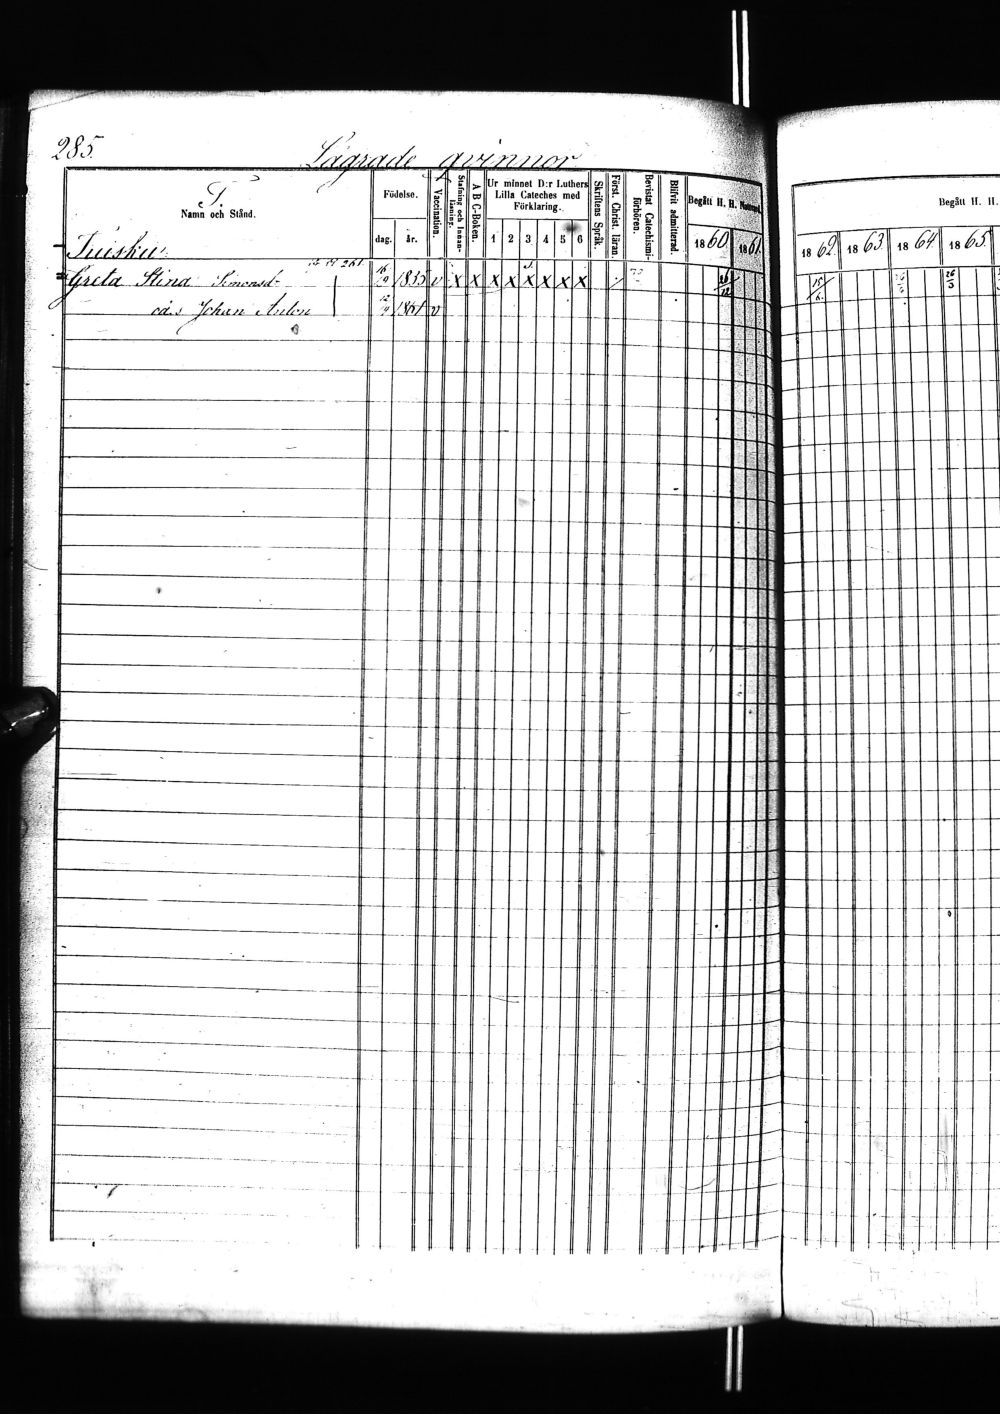 285.
Lägrade qvinnor
T.
Namn och Stånd.
Födelse.
dag. år.
Vaccination.
Stafning och Innanläsning.
A B C-Boken.
Ur minnet D:r Luthers Lilla Cateches med Förklaring.
1 2 3 4 5 6
Skriftens Språk.
Först. Christ. läran.
Bevistat Catechismiförhören.
Blifvit admitterad.
Begått H. H. Nattvard.
1860. 1861.
Begått H. H.
1862. 1863 1864 1865.
Tuisku
261
Greta Stina Simonsd. 16/9 1835 v x x x x x x x x 26/12 15/6 26/3
oä.s Johan Anton 12/9 v